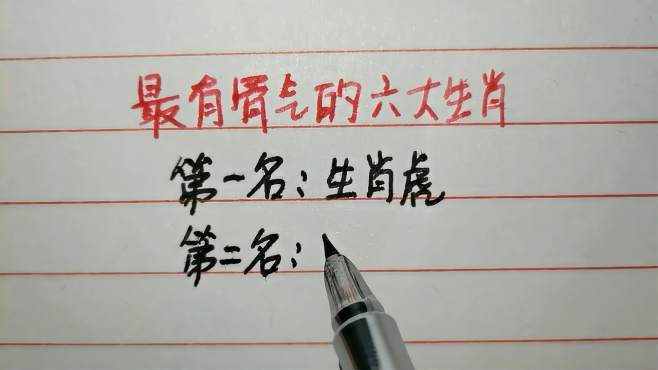 最有骨气的六大生肖
第一名：生肖虎
第二名：